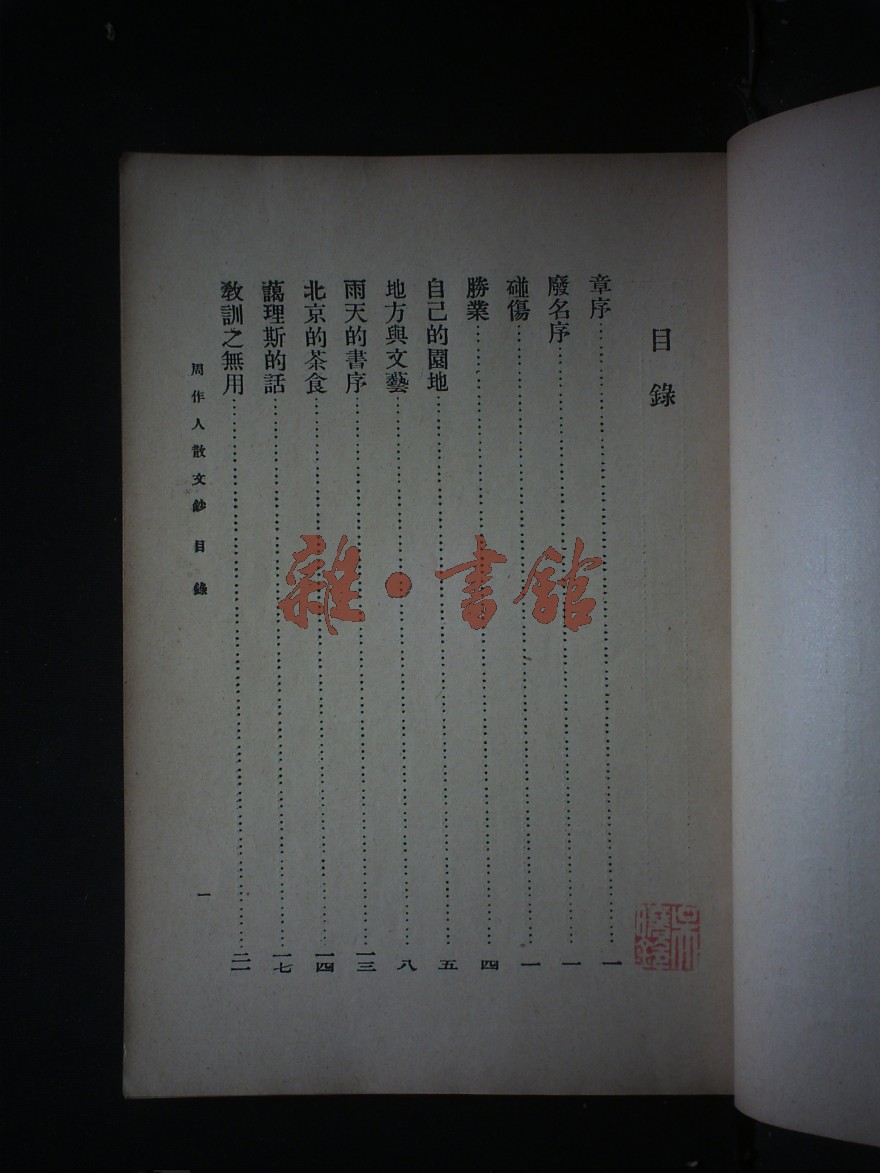 目錄
章序……一
廢名序……一
碰傷……一
勝業……四
自己的園地……五
地方與文藝……八
雨天的書序……一三
北京的茶食……一四
藹理斯的話……一七
教訓之無用……二一
周作人散文鈔 目錄
一
雜·書館